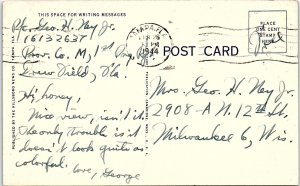 THIS SPACE FOR WRITING MESSAGES
Pfc. Geo. H. Ney Jr.
16132637
Prov. Co. M, 1st
Drew Field, Fla
Hi, honey,
Nice view, isn't it?
The only trouble is it
doesn't look quite as
colorful.
Love, George
TAMPA, FLA.
1944
POST CARD
PLACE
ONE CENT
STAMP
HERE
Free
Mrs. Geo. H. Ney Jr.
2908-A N. 12th St.
Milwaukee 6, Wis.